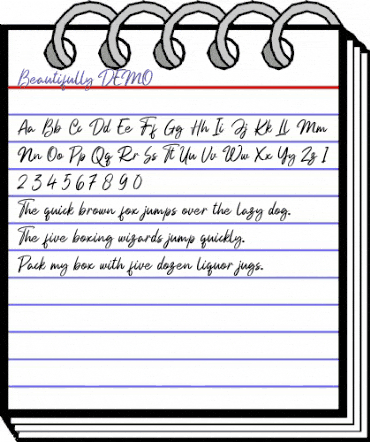 Beautifully DEMO
Aa Bb Cc Dd Ee Ff Gg Hh Ii Jj Kk Ll Mm
Nn Oo Pp Qq Rr Ss Tt Uu Vv Ww Xx Yy Zz 1
2 3 4 5 6 7 8 9 0
The quick brown fox jumps over the lazy dog.
The five boxing wizards jump quickly.
Pack my box with five dozen liquor jugs.